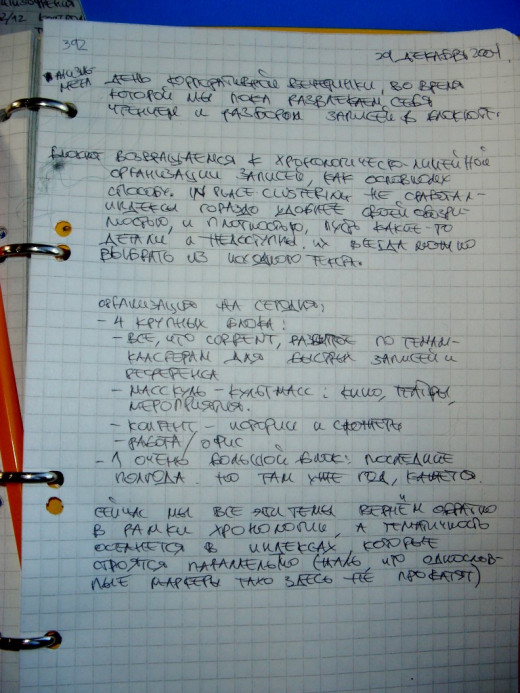 392
29 ДЕКАБРЯ 2004.
ЖИЗНЕ- ДЕНЬ КОРПОРАТИВНОЙ ВЕЧЕРИНКИ, ВО ВРЕМЯ
МЕТА КОТОРОЙ МЫ ПОКА РАЗВЛЕКАЕМ СЕБЯ
ЧТЕНИЕМ И РАЗБОРОМ ЗАПИСЕЙ В БЛОКНОТ.
БЛОКНОТ ВОЗВРАЩАЕМСЯ К ХРОНОЛОГИЧЕСКО-ЛИНЕЙНОЙ
ОРГАНИЗАЦИИ ЗАПИСЕЙ, КАК ОСНОВНОМУ
СПОСОБУ. IN PLACE CLUSTERING НЕ СРАБОТАЛ -
ИНДЕКСЫ ГОРАЗДО УДОБНЕЕ СВОЕЙ ОБОЗРИ-
МОСТЬЮ, И ПЛОТНОСТЬЮ, ПУСТЬ КАКИЕ-ТО
ДЕТАЛИ И НЕДОСТУПНЫ. ИХ ВСЕГДА МОЖНО
ВЫБРАТЬ ИЗ ИСХОДНОГО ТЕКСТА.
ОРГАНИЗАЦИЯ НА СЕГОДНЯ:
- 4 КРУПНЫХ БЛОКА:
- ВСЕ, ЧТО CURRENT, РАЗБИТОЕ ПО ТЕМАМ-
КЛАСТЕРАМ ДЛЯ БЫСТРЫХ ЗАПИСЕЙ И
РЕФЕРЕНСА
- МАССКУЛЬ - КУЛЬТМАСС: КИНО, ТЕАТРЫ,
МЕРОПРИЯТИЯ.
- КОНТЕНТ - ИСТОРИИ И СЮЖЕТЫ
- РАБОТА / ОФИС
- 1 ОЧЕНЬ БОЛЬШОЙ БЛОК: ПОСЛЕДНИЕ
ПОЛГОДА. ТО ТАМ УЖЕ ГОД, КАЖЕТСЯ.
СЕЙЧАС МЫ ВСЕ ЭТИ ТЕМЫ ВЕРНЁМ ОБРАТНО
В РАМКИ ХРОНОЛОГИИ, А ТЕМАТИЧНОСТЬ
ОСТАНЕТСЯ В ИНДЕКСАХ КОТОРЫЕ
СТРОЯТСЯ ПАРАЛЛЕЛЬНО (ЖАЛЬ, ЧТО ОДНОСЛОВ-
НЫЕ МАРКЕРЫ ЗДЕСЬ НЕ ПРОКАТЯТ)